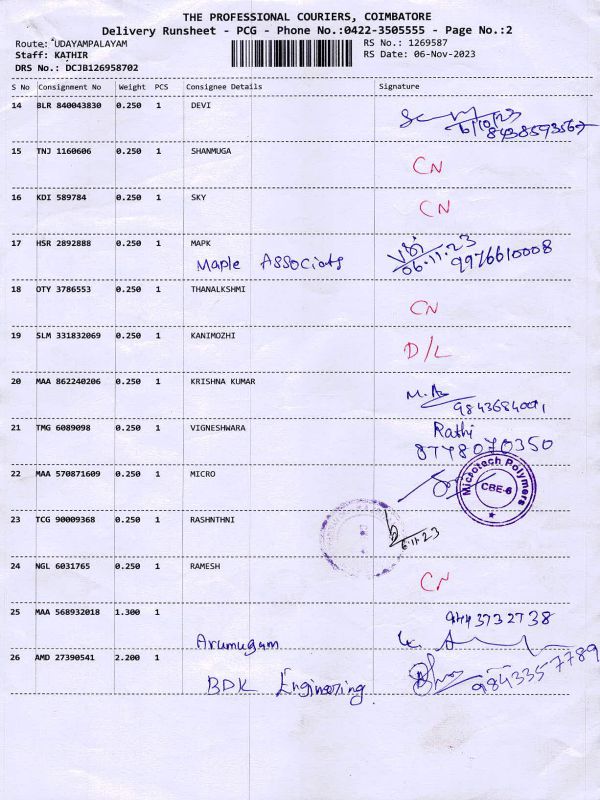 THE PROFESSIONAL COURIERS, COIMBATORE
Delivery Runsheet - PCG - Phone No.:0422-3505555 - Page No.:2
Route: UDAYAMPALAYAM RS No.: 1269587
Staff: KATHIR RS Date: 06-Nov-2023
DRS No.: DCJB126958702
S No Consignment No Weight PCS Consignee Details Signature
14 BLR 840043830 0.250 1 DEVI
6/10/23
8438593567
15 TNJ 1160606 0.250 1 SHANMUGA CN
16 KDI 589784 0.250 1 SKY CN
17 HSR 2892888 0.250 1 MAPK
Maple Associats 06.11.23 9976610008
18 OTY 3786553 0.250 1 THANALKSHMI
CN
19 SLM 331832069 0.250 1 KANIMOZHI D/L
20 MAA 862240206 0.250 1 KRISHNA KUMAR
9843684091
21 TMG 6089098 0.250 1 VIGNESHWARA Rathi
8778070350
22 MAA 570871609 0.250 1 MICRO
Microtech Polymers
CBE-6
23 TCG 90009368 0.250 1 RASHNTHNI
6.11.23
24 NGL 6031765 0.250 1 RAMESH CN
25 MAA 568932018 1.300 1 9443732738
Arumugam
26 AMD 27390541 2.200 1
BDK Engineering 9843357789